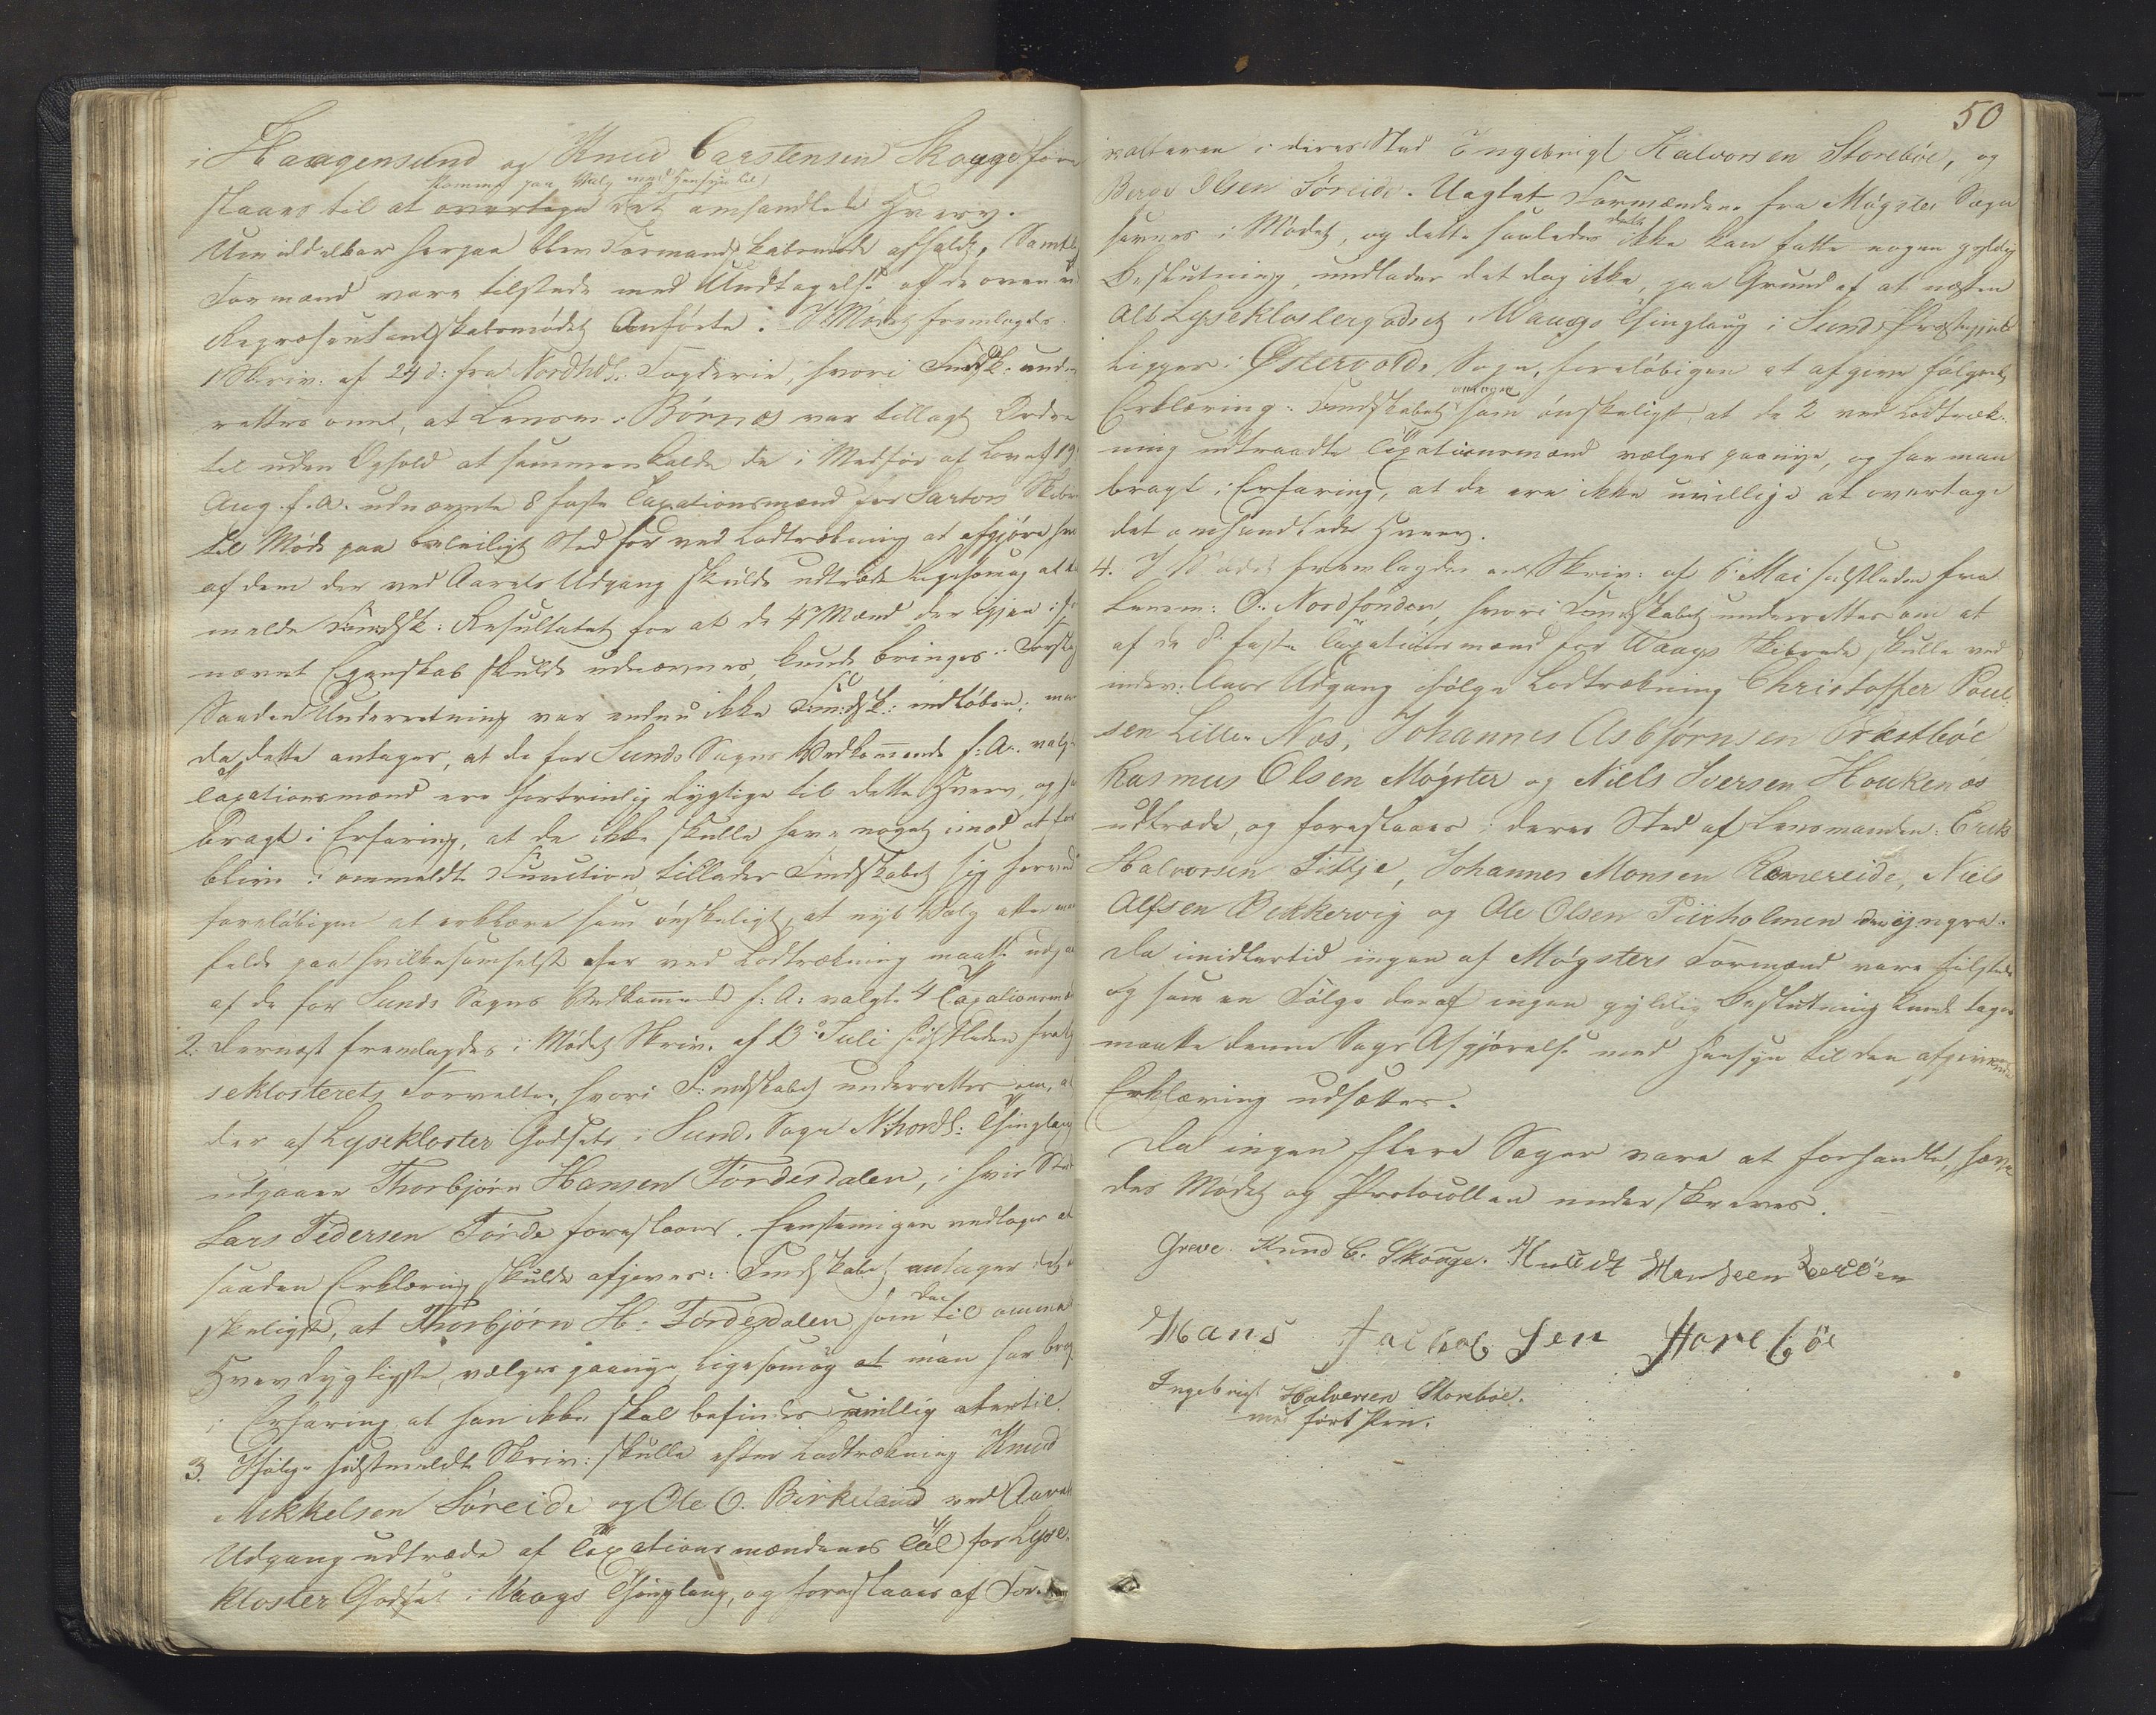 i Haagensund og Knud Carstensen Skauge fore
komme paa Valg med Hensyn til
slaaes til at overtage det omhandlede Hverv.
Umiddelbar herpaa blev Formandskabsmøde afholdt. Samtl
Formænd vare tilstede med Undtagelse af de oven
Repræsentantskabsmødet Anførte. I Mødet fremlagdes
1 Skriv: af 24 d: fra Nordhdl. Fogderie, hvori Fmdsk: under
rettes om, at Lensm: Børnæs var tillagt Ordre
til uden Ophold at sammenkalde de i Medfør af Lov af 19
Aug. f. A. udnævnte 8 faste Taxationsmænd for Sartors Skibr
til Møde paa beleiligt Sted for ved Lodtrækning at afgjøre hv
af dem der ved Aarets Udgang skulde udtræde ligesom og at
melde Fmdsk: Resultatet for at de 4 Mænd der igjen i
nævnt Egenskab skulde udnævnes, kunde bringes i Forslag
Saadan Underretning var endnu ikke Fmdsk: indløben; men
da dette antager, at de for Sunds Sogns Vedkommende f: A: valg
Taxationsmænd ere fortrinlig dygtige til dette Hverv, og h
bragt i Erfaring, at de ikke skulle have noget imod at for
blive i ommeldte Function, tillader Fmdskabet sig herved
foreløbigen at erklære som ønskeligt, at nyt Valg atter m
falde paa hvilkesomhelst der ved Lodtrækning maatte udg
af de for Sunds Sogns Vedkommende f: A: valgte 4 Taxationsmæ
2. Dernæst fremlagdes i Mødet Skriv. af 13de Juli sidstleden fra Ly
seklosterets Forvalter, hvori Fmdskabet underrettes om, at
der af Lysekloster Godsets i Sunds Sogn N.hordl: Thinglaug
udgaaer Thorbjørn Hansen Tørdesdalen, i hvis Sted
Lars Pedersen Førde foreslaaes. Eenstemigen vedtoges at
saadan Erklæring skulde afgives: Fmdskabet antager det
skeligst, at Thorbjørn H: Førdesdalen som den til omme
Hverv dygtigste, vælges paanye, ligesom og at man har brag
i Erfaring at han ikke skal befindes uvillig dertil.
3. Ifølge sidstmeldte Skriv: skulle efter Lodtrækning Knud
Mikkelsen Søreide og Ole O. Birkeland ved Aarets
Udgang udtræde af Taxationsmændenes Tal for Lyse
kloster Godset i Vaags Thinglaug, og foreslaaes af For
50
valteren i deres Sted Engebrigt Halvorsen Storebøe, og
Berge Olsen Søreide. Uagtet Formændene fra Møgster Sogn
savnes i Mødet, og dette saaledes ikke kan fatte nogen gyldig
Beslutning, undlader det dog ikke, paa Grund af at næsten
alt Lyseklostergodset i Waags Thinglaug i Sunds Præstegjeld
ligger i Østervolds Sogn, foreløbigen at afgive følgende
Erklæring: Fmdskabet antager som ønskeligst, at de 2 ved Lodtræk
ning udtraadte Taxationsmænd vælges paanye, og har man
bragt i Erfaring, at de ere ikke uvillige at overtage
det omhandlede Hverv.
4. I Mødet fremlagdes en Skriv: af 6 Mai sidstleden fra
Lensm: O. Nordfonden, hvori Fmdskabet underrettes om at
af de 8 faste Taxationsmænd for Waags Skibrede skulle ved
indev: Aars Udgang ifølge Lodtrækning Christoffer Poul
sen Lille Nos, Johannes Asbjørnsen Træstbøe
Rasmus Olsen Møgster og Niels Iversen Houkenæs
udtræde, og foreslaaes i deres Sted af Lensmanden: Erik
Halvorsen Fittje, Johannes Monsen Ramereide, Niels
Alfsen Bekkervig og Ole Olsen Piirholmen den yngre.
Da imidlertid ingen af Møgsters Formænd vare tilstede
og som en Følge deraf ingen gyldig Beslutning kunde tages
maatte denne Sags Afgjørelse med Hensyn til den afgivende
Erklæring udsættes.
Da ingen flere Sager vare at forhandle, hæve
des Mødet og Protocollen underskreves.
Greve. Knud C. Skouge. Knudt Hansen
Hans Jachobsen Storebøe
Ingebrigt Halversen Storebøe.
med ført Pen.